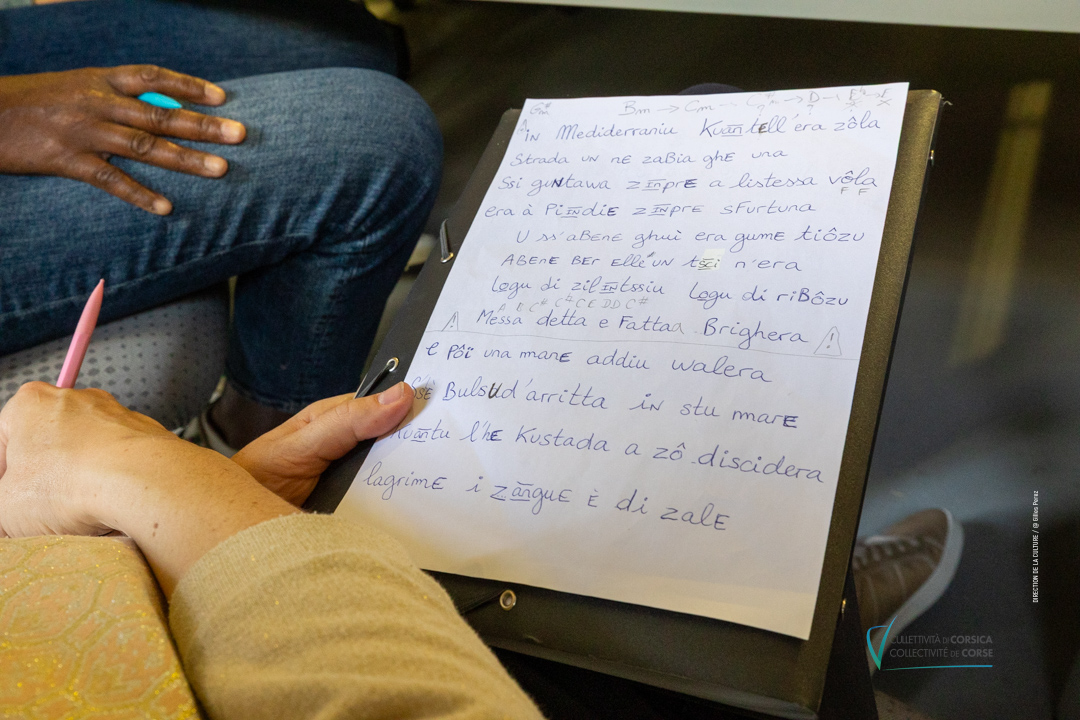 G#m Bm → Cm → D
iN Mediderraniu Kuantell'era zôla
Strada uN NE zaBia ghE una
Ssi guNtawa zINprE a listessa vôla
F F
era à PiINdiE zINprE sFurtuna
U ss'aBENE ghuì era gumE tiôzu
ABENE BEr Ellë uN tsci n'era
Logu di zilINtssiu Logu di riBôzu
Messa detta e Fattaa Brighera
e Pôï una manE addiu walera
BulsUd'arritta iN stu marE
Kuantu l'hE Kustada a zô discidera
lagrimE i zanguE È di zalE
DIRECTION DE LA CULTURE / @ Gilles Perez
CULLETTIVITÀ DI CORSICA
COLLECTIVITÉ DE CORSE